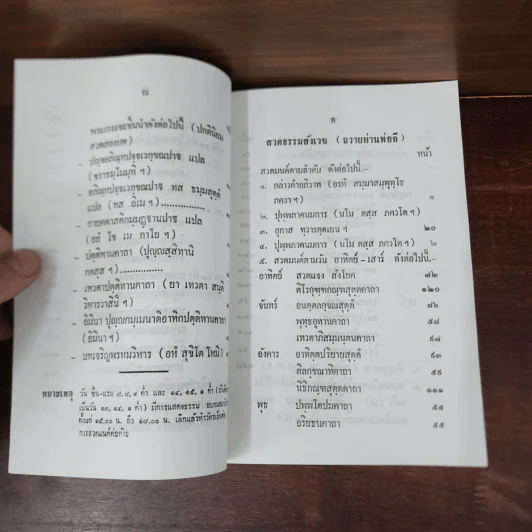 ณ
พระเถระจะขึ้นนำดังต่อไปนี้ (ปกตินิยม
สวดสองบท)
แปล
(ชราธมฺโมมฺหิ ฯ)
- อภิณฺหปจฺจเวกฺขณปาฐ ทส ธมฺมสุตฺต
แปล (ทส อิเม ฯ)
- กายคตาสติกมฺมฏฺฐานปาฐ แปล
(อยํ โข เม กาโย ฯ)
- ปตฺติทานคาถา (ปุญฺญสฺสิทานิ
กตสฺส ฯ)
- เทวตาปตฺติทานคาถา (ยา เทวตา สนฺติ
วิหารวาสินี ฯ)
- อิมินา ปุญฺญกมฺเมน
(อิมินา ฯ)
- บทเจริญพรหมวิหาร (อหํ สุขิโต โหมิ)
หมายเหตุ วัน ขึ้น-แรม ๗, ๘, ๙ ค่ำ และ ๑๔, ๑๕, ๑ ค่ำ
เป็นวัน ๑๓, ๑๔, ๑ ค่ำ) มีการแสดงธรรม
ตั้งแต่ ๑๕.๐๐ น. ถึง ๑๗.๐๐ น. เลิกแล้วทำวัตรเย็น
การสวดมนต์ต่อท้าย
ต
สวดธรรมสังเวช (ถวายท่านพ่อลี)
หน้า
สวดมนต์ตามลำดับ ดังต่อไปนี้.-
๑. กล่าวคำอภิวาท (อรหํ สมฺมาสมฺพุทฺโธ
ภควา ฯ)
๒. ปุพฺพภาคนมการ (นโม ตสฺส ภควโต ฯ)
๓. อุกาส ทฺวารตฺตเยน ฯ ๒๐
๔. ปุพฺพภาคนมการ (นโม ตสฺส ภควโต ฯ)
๕. สวดมนต์ตามวัน อาทิตย์ - เสาร์ ดังต่อไปนี้.-
อาทิตย์ สวดแจง สังโยค ๗๒
ติโรกุฑฺฑกณฺฑสุตฺตคาถา ๑๒๐
จันทร์ อนตฺตลกฺขณสุตฺต ๘๖
พุทฺธอุทานคาถา ๕๘
เทวตาภิสมฺมนฺตนคาถา
อังคาร อาทิตฺตปริยายสุตฺต ๙๓
ติลกฺขณาทิคาถา
นิธิกณฺฑสุตฺตคาถา ๑๑๑
พุธ ปพฺพโตปมคาถา ๕๔
อริยธนคาถา ๕๕